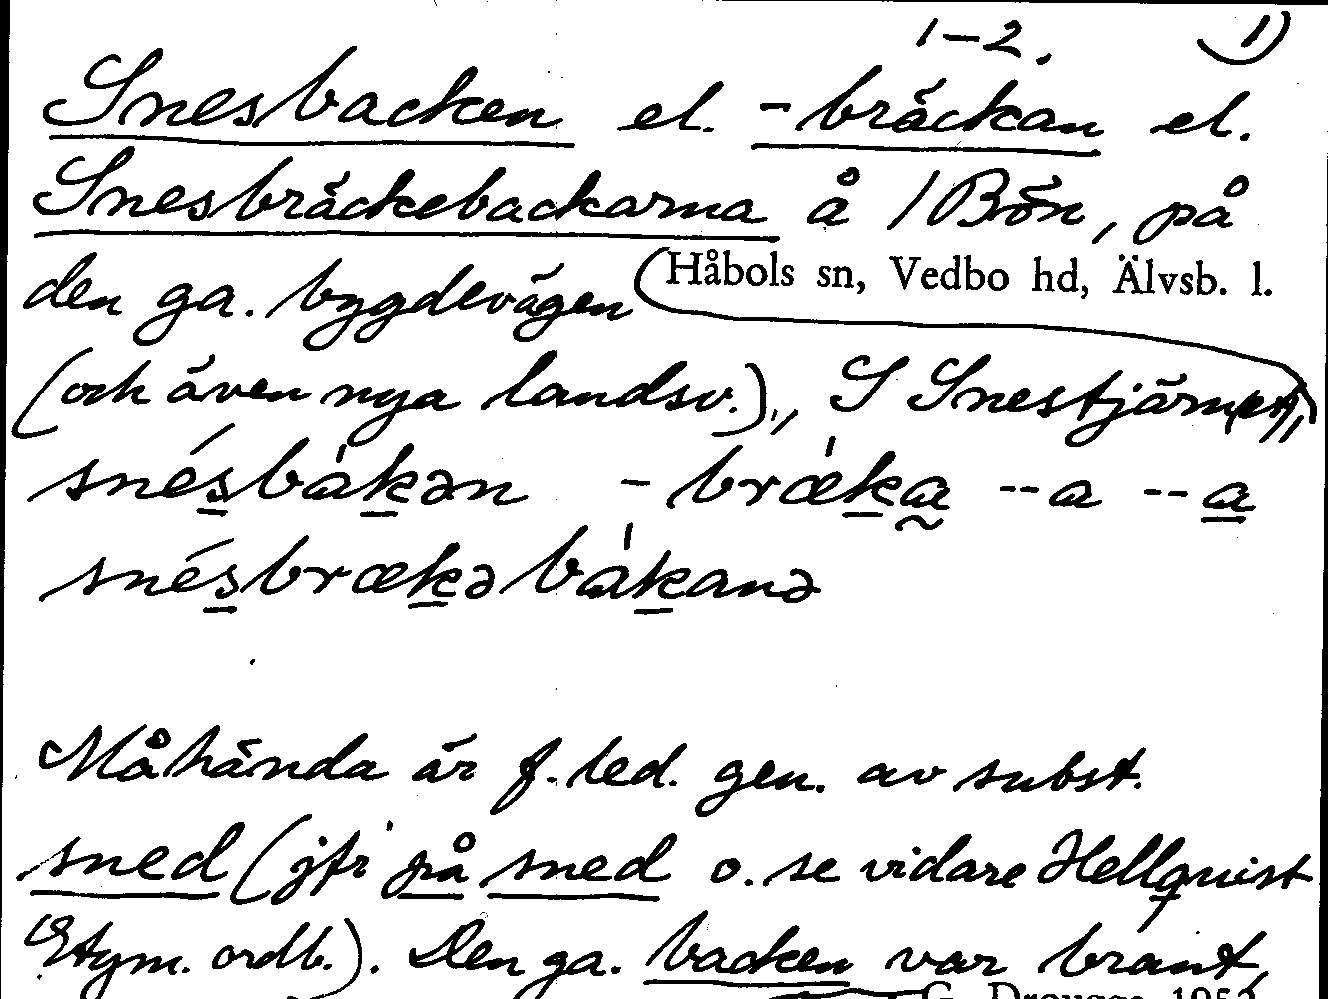 1-2. 1)
Snesbacken el. -bräckan el.
Snesbräckebackarna å 1 Bön, på
Håbols sn, Vedbo hd, Älvsb. l.
den ga. bygdevägen
(och även nya landsv.),, S Snestjärnet,,
snésbàkən -bræ̀ka --a --a
snésbrækəbàkanə
Måhända är f. led. gen. av subst.
sned (jfr på sned o. se vidare Hellquist
Etym. ordb.). Den ga. backen var brant,
G. Drougge 1952